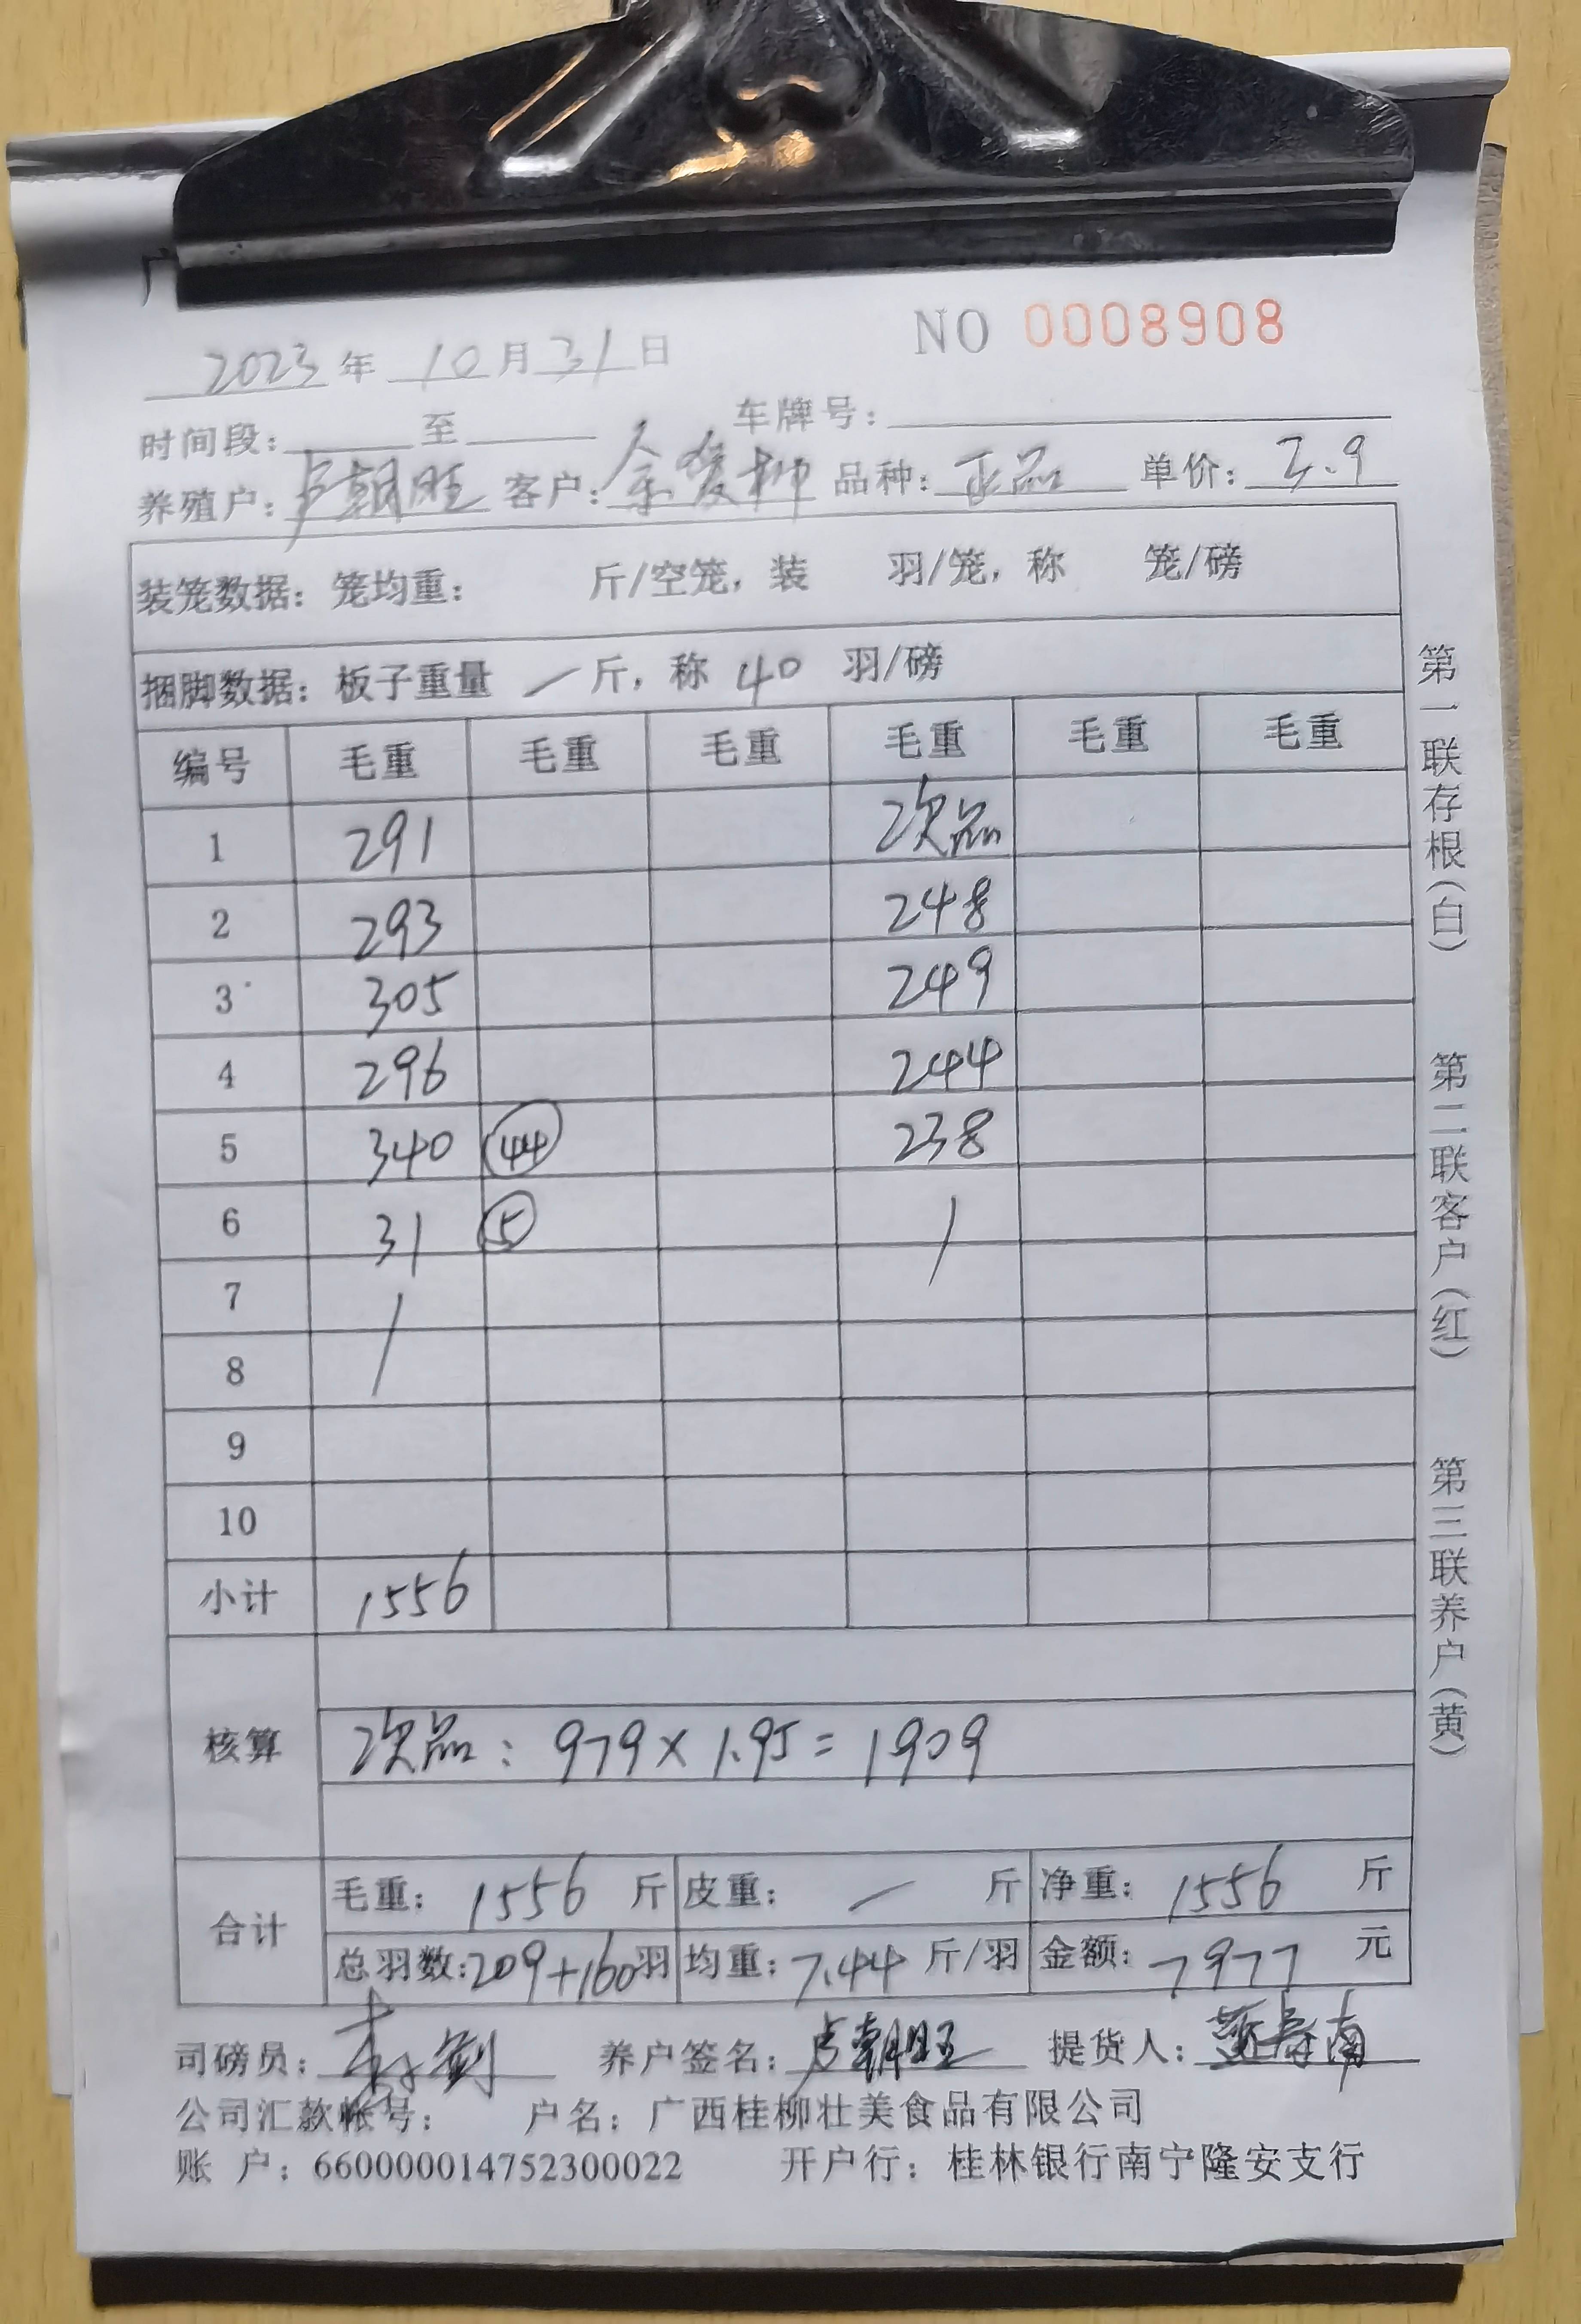 广
NO 0008908
2023年10月31日
时间段: 至 车牌号:
养殖户: 卢朝旺 客户: 余爱柳 品种: 正品 单价: 3.9
装笼数据: 笼均重: 斤/空笼, 装 羽/笼, 称 笼/磅
捆脚数据: 板子重量 — 斤, 称 40 羽/磅
编号 毛重 毛重 毛重 毛重 毛重 毛重
1 291 次品
2 293 248
3 305 249
4 296 244
5 340 44 238
6 31 5 /
7 /
8
9
10
小计 1556
核算
次品: 979×1.95=1909
合计
毛重: 1556 斤 皮重: — 斤 净重: 1556 斤
总羽数: 209+160羽 均重: 7.44 斤/羽 金额: 7977 元
司磅员: 养户签名: 卢朝旺 提货人:
公司汇款帐号: 户名: 广西桂柳壮美食品有限公司
账 户: 660000014752300022 开户行: 桂林银行南宁隆安支行
第一联存根(白)
第二联客户(红)
第三联养户(黄)